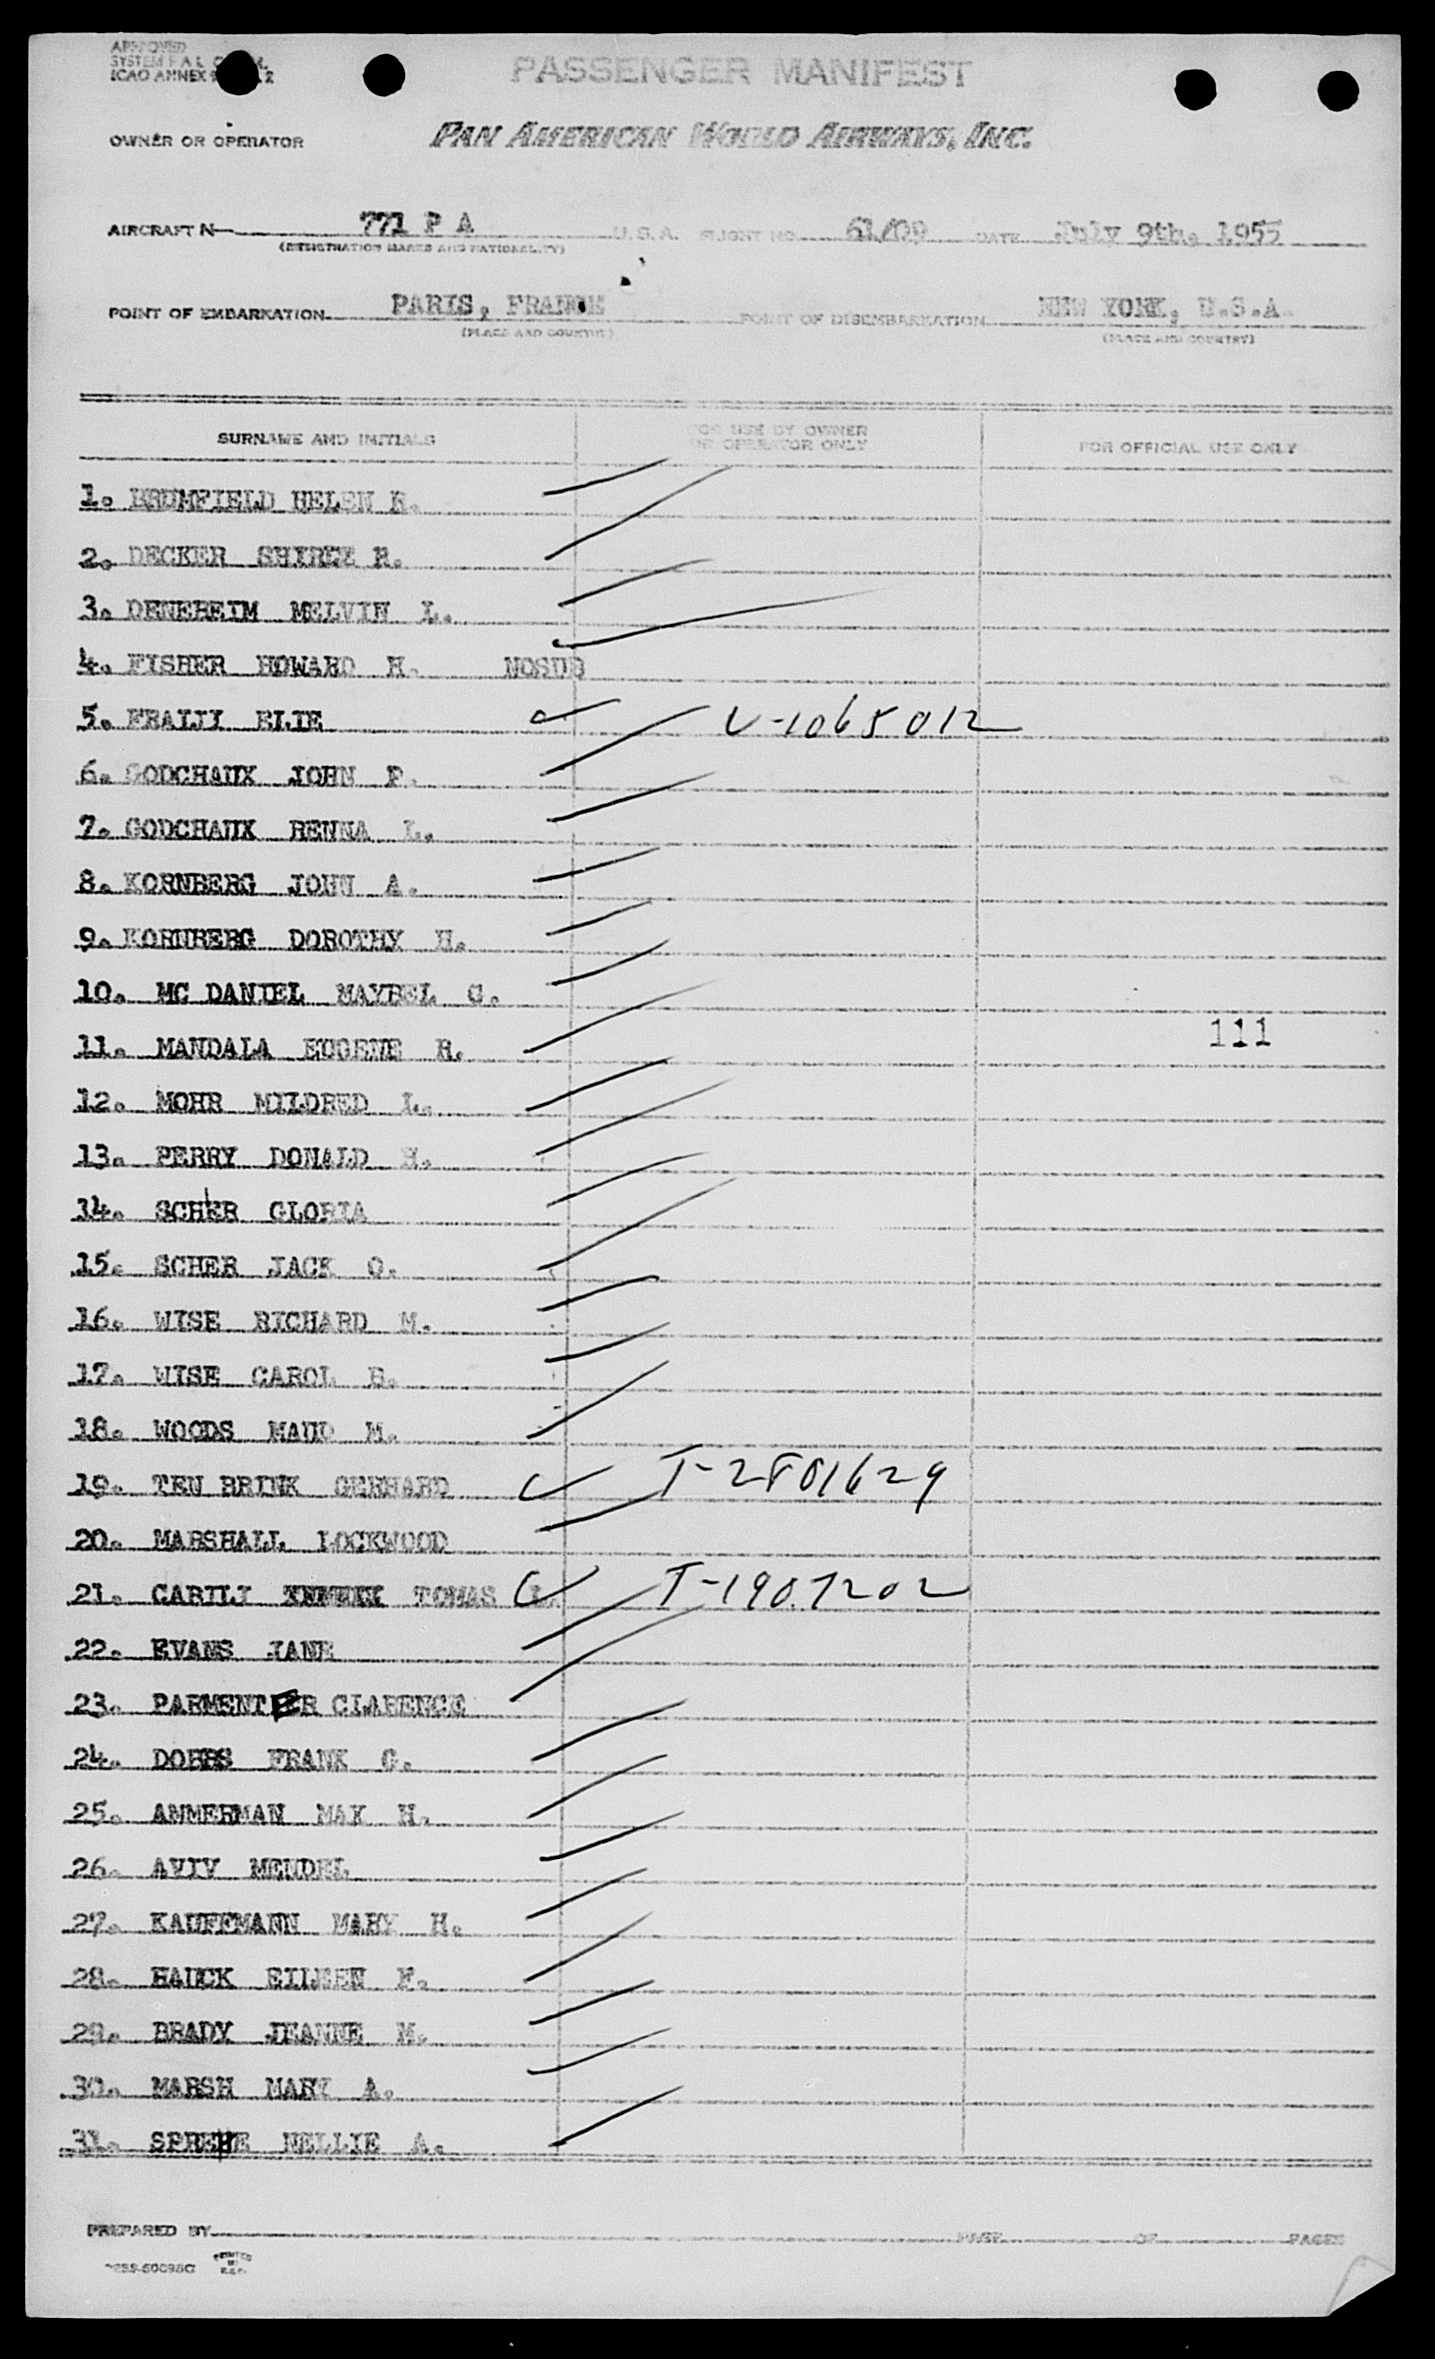 APPROVED
SYSTEM F A L
ICAO ANNEX 9
PASSENGER MANIFEST
OWNER OR OPERATOR PAN AMERICAN WORLD AIRWAYS, INC.
AIRCRAFT N 771 P A U.S.A. FLIGHT NO. 61/09 DATE July 9th. 1955
(REGISTRATION MARKS AND NATIONALITY)
POINT OF EMBARKATION PARIS, FRANCE POINT OF DISEMBARKATION NEW YORK, U.S.A.
(PLACE AND COUNTRY) (PLACE AND COUNTRY)
SURNAME AND INITIALS FOR USE BY OWNER OR OPERATOR ONLY FOR OFFICIAL USE ONLY
1. BRUMFIELD HELEN R.
2. DECKER SHIREE R.
3. DENEHEIM MELVIN L.
4. FISHER HOWARD H. NOSUB
5. FRAIJI ELIE V-1065012
6. GODCHAUX JOHN P.
7. GODCHAUX RENNA L.
8. KORNBERG JOHN A.
9. KORNBERG DOROTHY H.
10. MC DANIEL MAYBEL G.
11. MANDALA EUGENE R. 111
12. MOHR MILDRED L.
13. PERRY DONALD H.
14. SCHER GLORIA
15. SCHER JACK O.
16. WISE RICHARD M.
17. WISE CAROL B.
18. WOODS MAUD M.
19. TEN BRINK GERHARD T-2801629
20. MARSHALL LOCKWOOD
21. CARILI TOMAS L. T-1907202
22. EVANS JANE
23. PARMENTER CLARENCE
24. DOBBS FRANK G.
25. AMMERMAN MAX H.
26. AVIV MENDEL
27. KAUFFMANN MARY H.
28. HAUCK EILEEN F.
29. BRADY JEANNE M.
30. MARSH MARY A.
31. SPREHE NELLIE A.
PREPARED BY PAGE OF PAGES
PRINTED IN U.S.A.